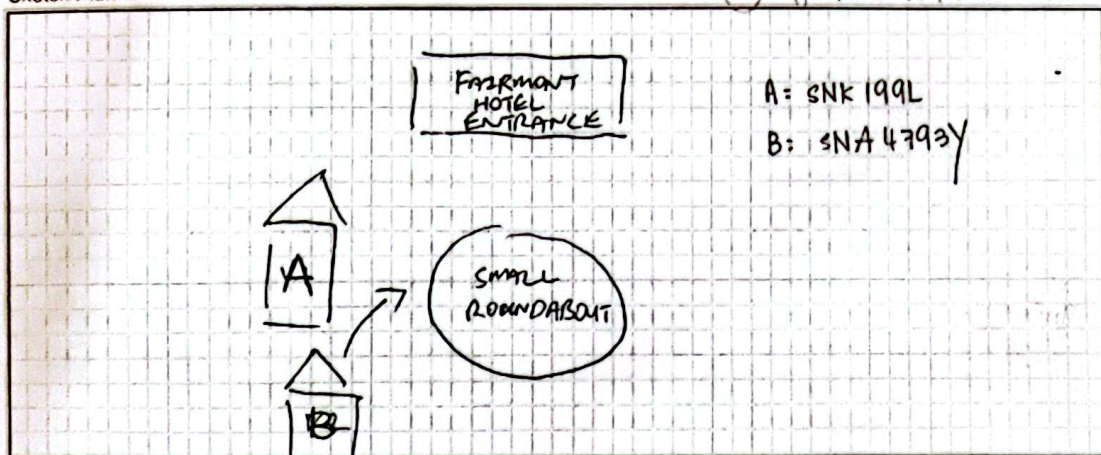 FAIRMONT
HOTEL
ENTRANCE
A: SNK 199L
B: SNA 4793Y
A
SMALL
ROUNDABOUT
B